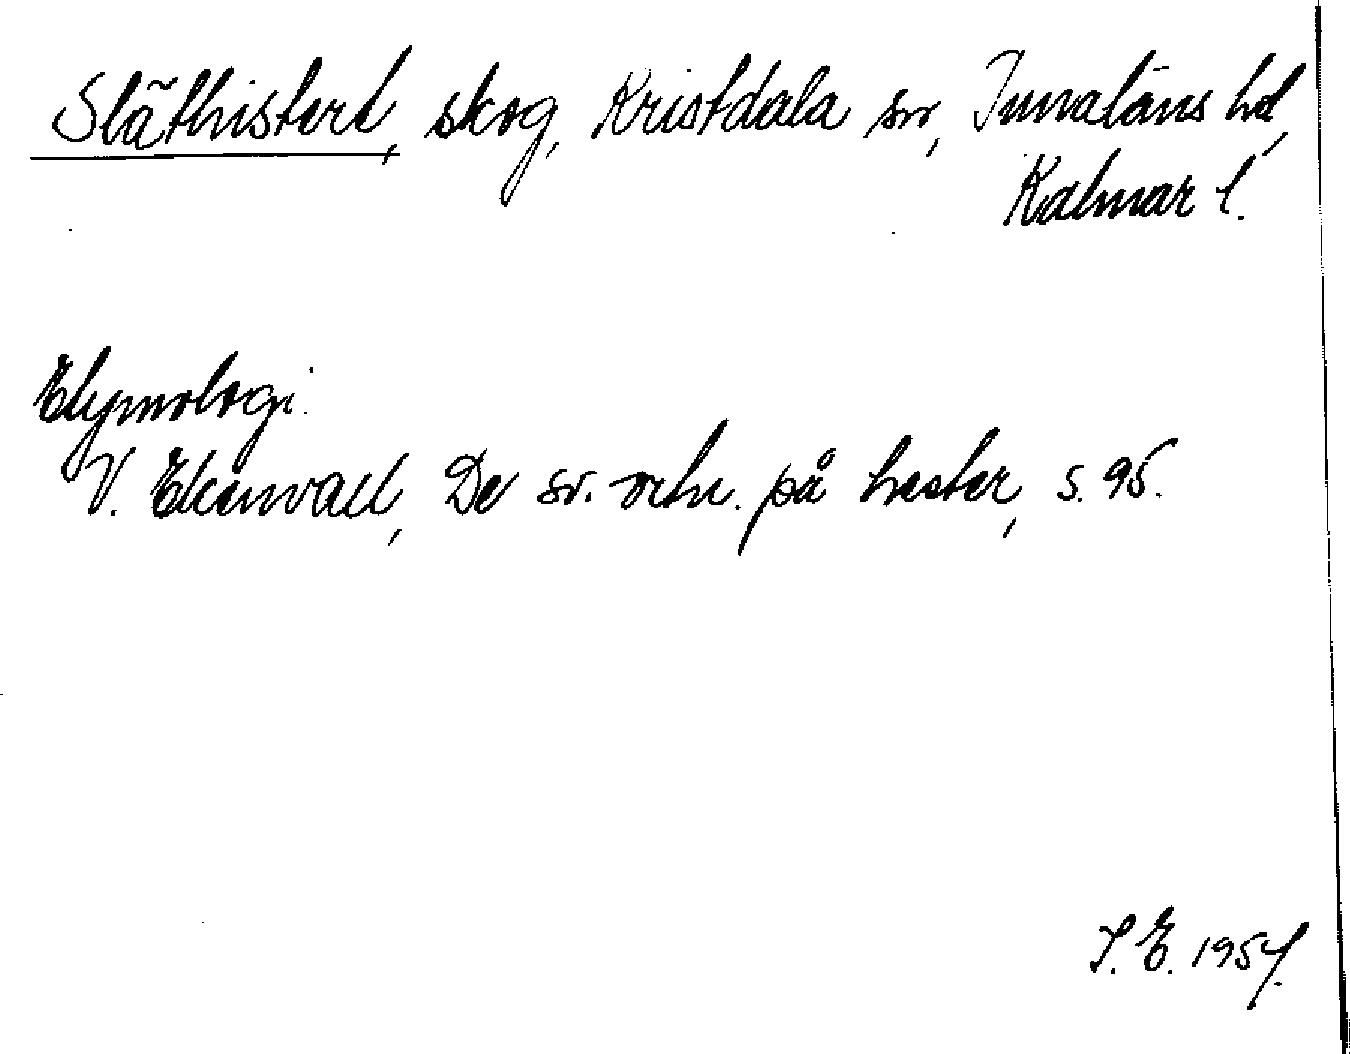 Släthistert, skog, Kristdala sn, Tunaläns hd,
Kalmar l.
Etymologi.
V. Ekenvall, De sv. ortn. på hester, s. 95.
S. E. 1954.